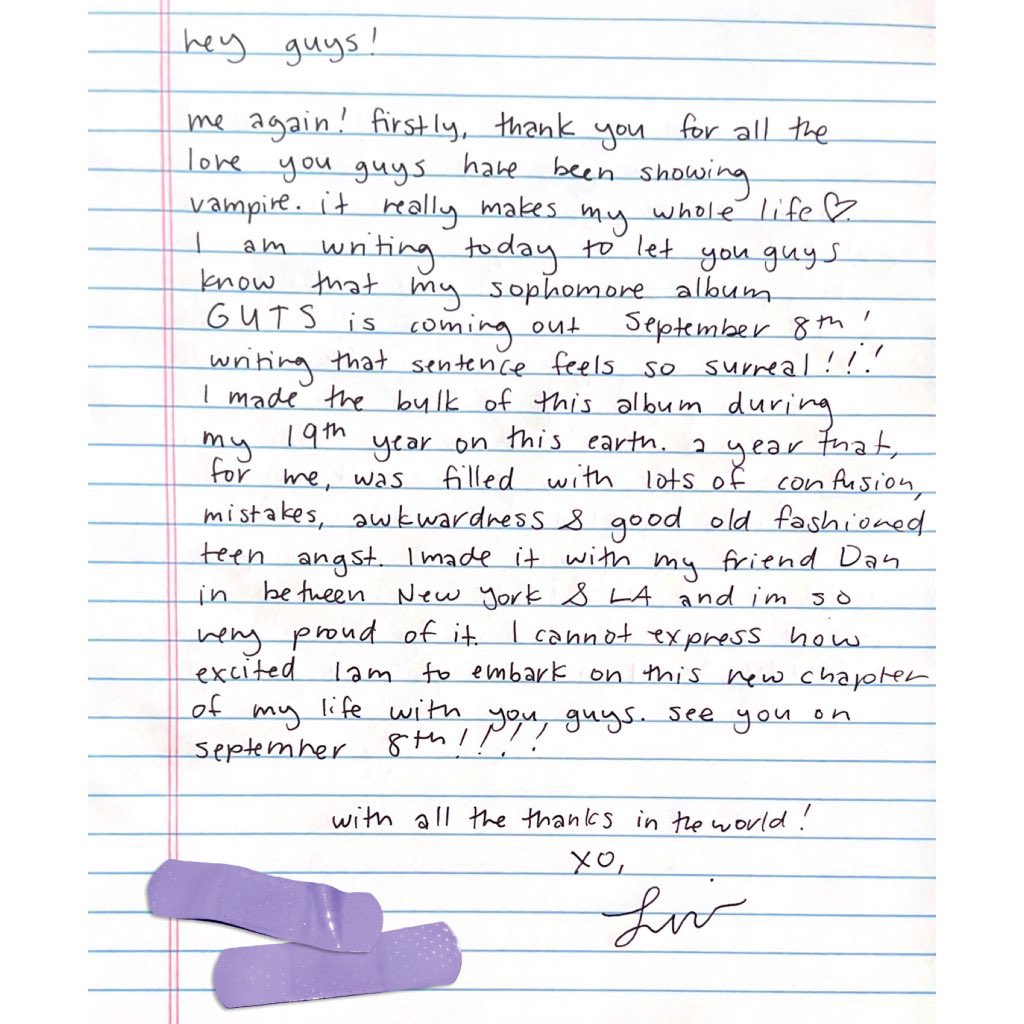 hey guys!
me again! firstly, thank you for all the
love you guys have been showing
vampire. it really makes my whole life♡.
I am writing today to let you guys
know that my sophomore album
GUTS is coming out September 8th!
writing that sentence feels so surreal!!!
I made the bulk of this album during
my 19th year on this earth. a year that,
for me, was filled with lots of confusion,
mistakes, awkwardness & good old fashioned
teen angst. I made it with my friend Dan
in between New York & LA and im so
very proud of it. I cannot express how
excited I am to embark on this new chapter
of my life with you guys. see you on
september 8th!!!!
with all the thanks in the world!
xo,
Liv